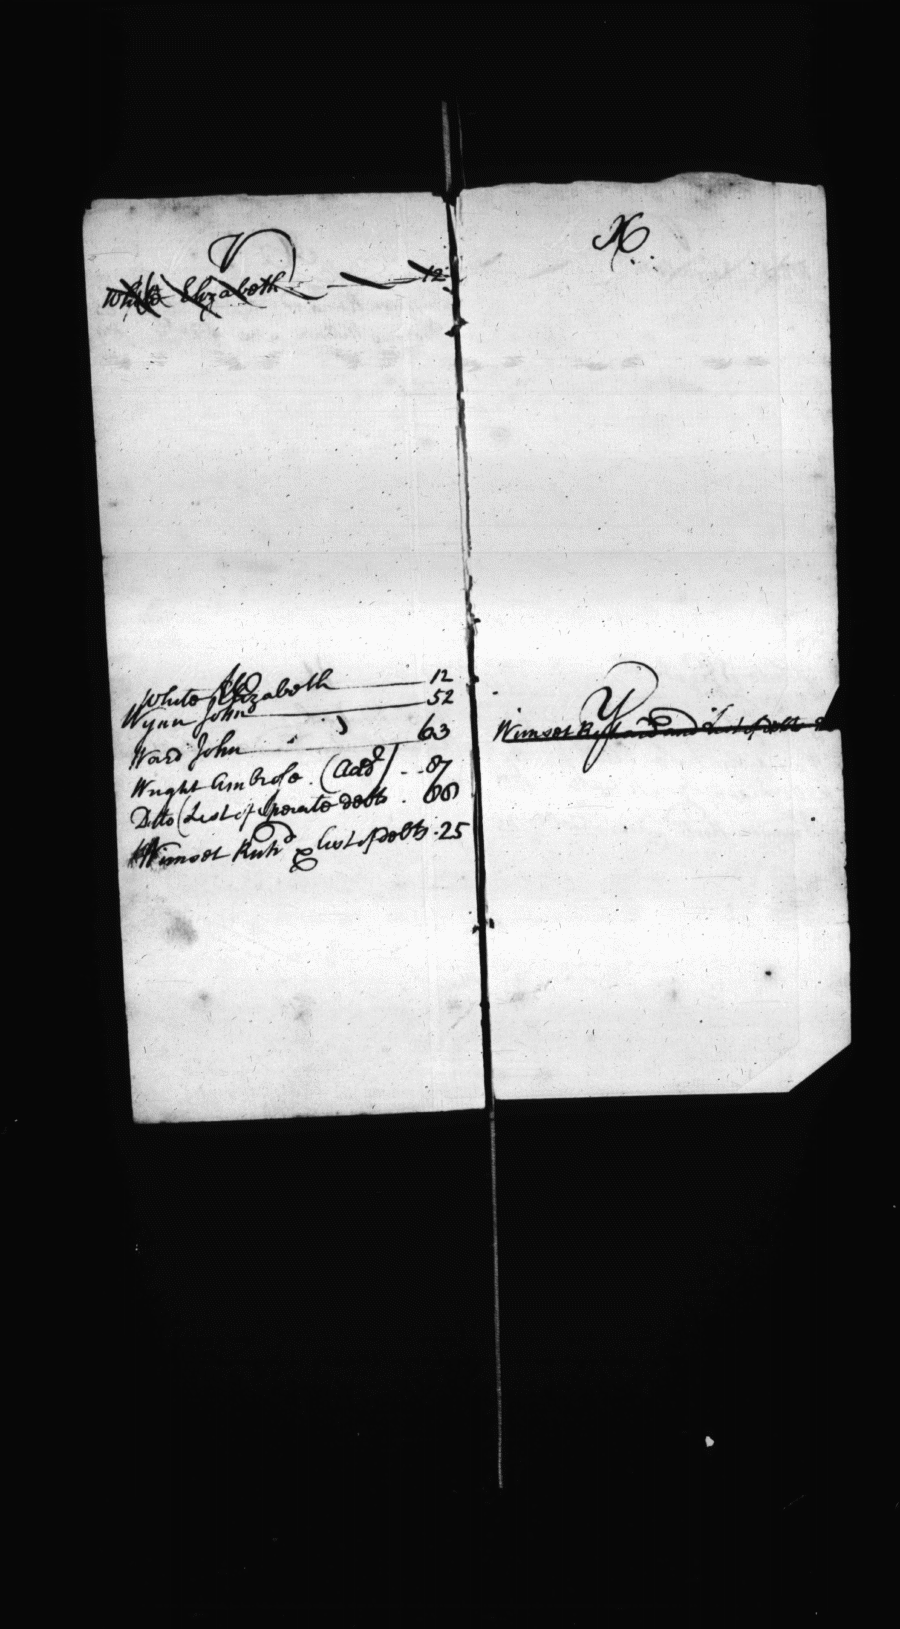 V
White Elizabeth 12
W
White Elizabeth 12
Wynn John 52
Ward John 63
Wright Ambrose (Addl) 87
Ditto (List of Sperate debts 88
Wimset Richd & List of debts 25
X
Y
Wimset Richard and List of debts